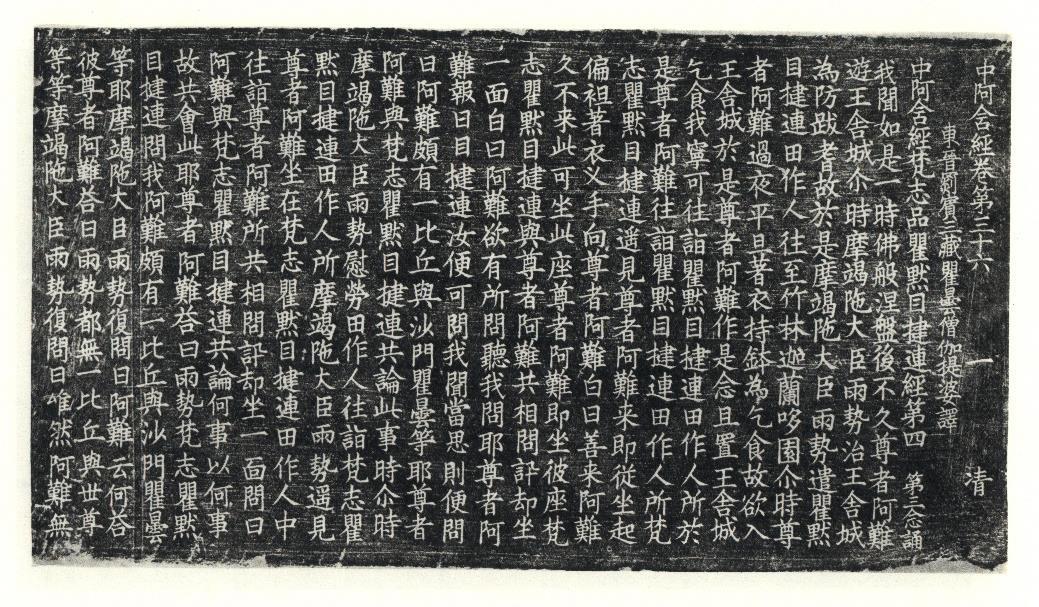 中阿含經卷第三十六 一 清
東晉罽賓三藏瞿曇僧伽提婆譯
中阿含經梵志品瞿默目揵連經第四 第三念誦
我聞如是一時佛般涅盤後不久尊者阿難
遊王舍城尒時摩竭陁大臣雨勢治王舍城
為防跋耆故於是摩竭陁大臣雨勢遣瞿默
目揵連田作人往至竹林迦蘭哆園尒時尊
者阿難過夜平旦著衣持鉢為乞食故欲入
王舍城於是尊者阿難作是念且置王舍城
乞食我寧可往詣瞿默目揵連田作人所於
是尊者阿難往詣瞿默目揵連田作人所梵
志瞿默目揵連遥見尊者阿難来即從坐起
偏袒著衣叉手向尊者阿難白曰善来阿難
久不来此可坐此座尊者阿難即坐彼座梵
志瞿默目揵連與尊者阿難共相問訊却坐
一面白曰阿難欲有所問聽我問耶尊者阿
難報曰目揵連汝便可問我聞當思則便問
曰阿難頗有一比丘與沙門瞿曇等耶尊者
阿難與梵志瞿默目揵連共論此事時尒時
摩竭陁大臣雨勢慰勞田作人往詣梵志瞿
默目揵連田作人所摩竭陁大臣雨勢遥見
尊者阿難坐在梵志瞿默目揵連田作人中
往詣尊者阿難所共相問訊却坐一面問曰
阿難與梵志瞿默目揵連共論何事以何事
故共會此耶尊者阿難荅曰雨勢梵志瞿默
目揵連問我阿難頗有一比丘與沙門瞿曇
等耶摩竭陁大臣雨勢復問曰阿難云何荅
彼尊者阿難荅曰雨勢都無一比丘與世尊
等等摩竭陁大臣雨勢復問曰唯然阿難無